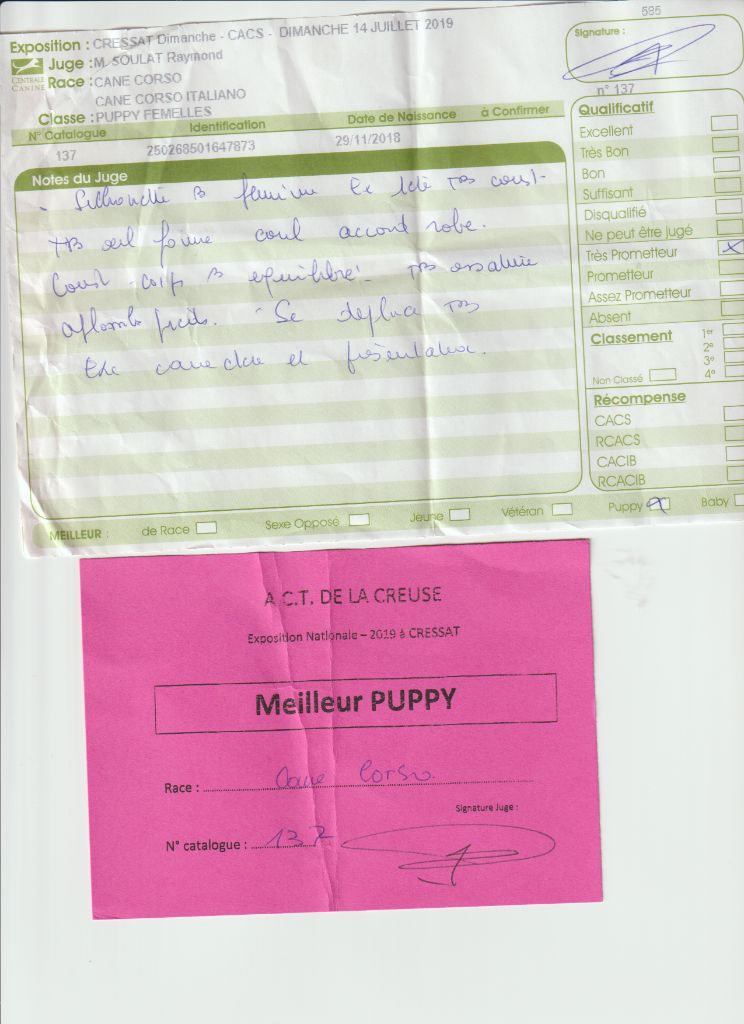 595
Exposition : CRESSAT Dimanche - CACS - DIMANCHE 14 JUILLET 2019
Signature :
Juge : M. SOULAT Raymond
CENTRALE CANINE
Race : CANE CORSO
CANE CORSO ITALIANO
n° 137
Classe : PUPPY FEMELLES
N° Catalogue Identification Date de Naissance à Confirmer
137 250268501647873 29/11/2018
Notes du Juge
- Silhouette B féminine Ex tête TB const-
TB œil forme coul accord robe.
Const - corps B equilibré - TB ossature
aplombs - Se deplace TB
Exc caractère et présentation.
Qualificatif
Excellent
Très Bon
Bon
Suffisant
Disqualifié
Ne peut être jugé
Très Prometteur x
Prometteur
Assez Prometteur
Absent
Classement
1er
2e
3e
4e
Non Classé
Récompense
CACS
RCACS
CACIB
RCACIB
MEILLEUR : de Race Sexe Opposé Jeune Vétéran Puppy x Baby
A.C.T. DE LA CREUSE
Exposition Nationale – 2019 à CRESSAT
Meilleur PUPPY
Race : Cane Corso
Signature Juge :
N° catalogue : 137